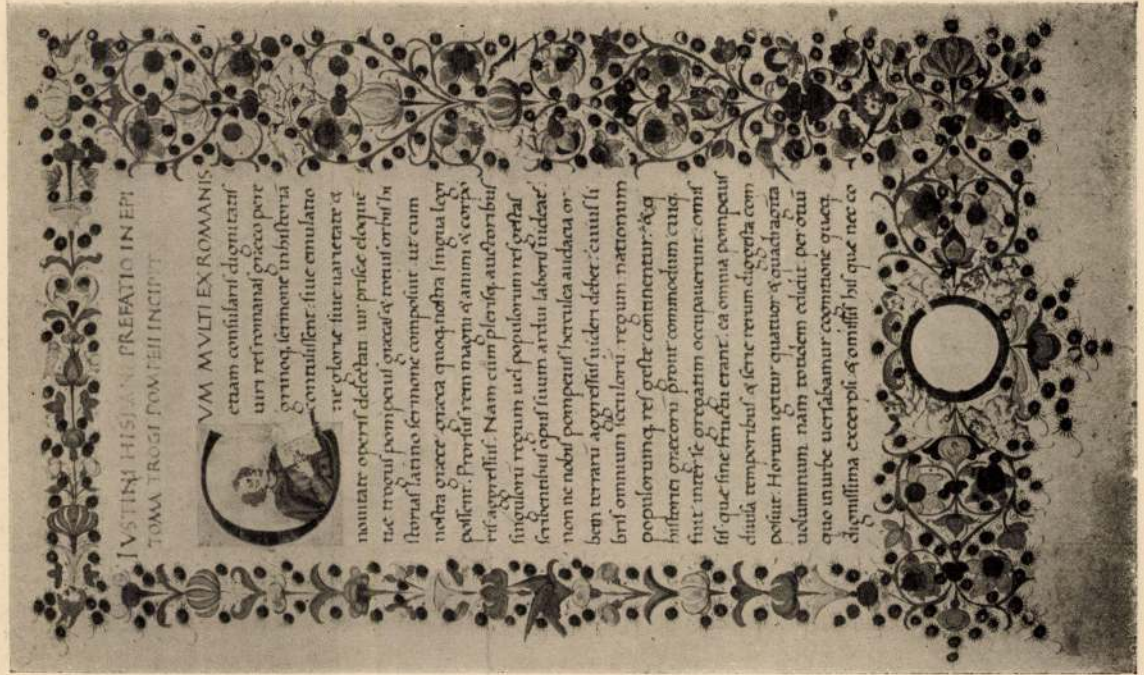 IVSTINI PREFATIO IN EPI
TOMA TROGI POMPEII INCIPIT
CVM MVLTI EX ROMANIS
etiam consularis dignitatis
uiri res romanas græco pere
grinoq; sermone in historiā
contulissent: siue emulatio
ne glorie siue uarietate &
nouitate operis delectati uir prisce eloquē
tie trogus pompeius græcas & totius orbis hi
storias latino sermone composuit ut cum
nostra græce græca quoq; nostra lingua legi
possent. Prorsus rem magni & animi & corpo
ris agressus. Nam cum plerisq; auctoribus
singulorū regum uel populorum res gestas
scribentibus opus suum ardui laboris uideat̄
non ne nobis pompeius herculea audacia or
bem terrarū agressus uideri debet: cuius li
bris omnium seculorū: regum nationum
populorumq; res geste continentur: & q̄
historici græcorū prout commodum cuiq;
fuit inter se gregatim occupauerunt: omis
sis que sine fructu erant: ea omnia pompeius
diuisa temporibus & serie rerum digesta com
posuit. Horum igitur quatuor & quadragīta
uoluminum nam totidem edidit per otiū
quo in urbe uersabamur cognitione queq;
dignissima excerpsi & omissis his que nec co